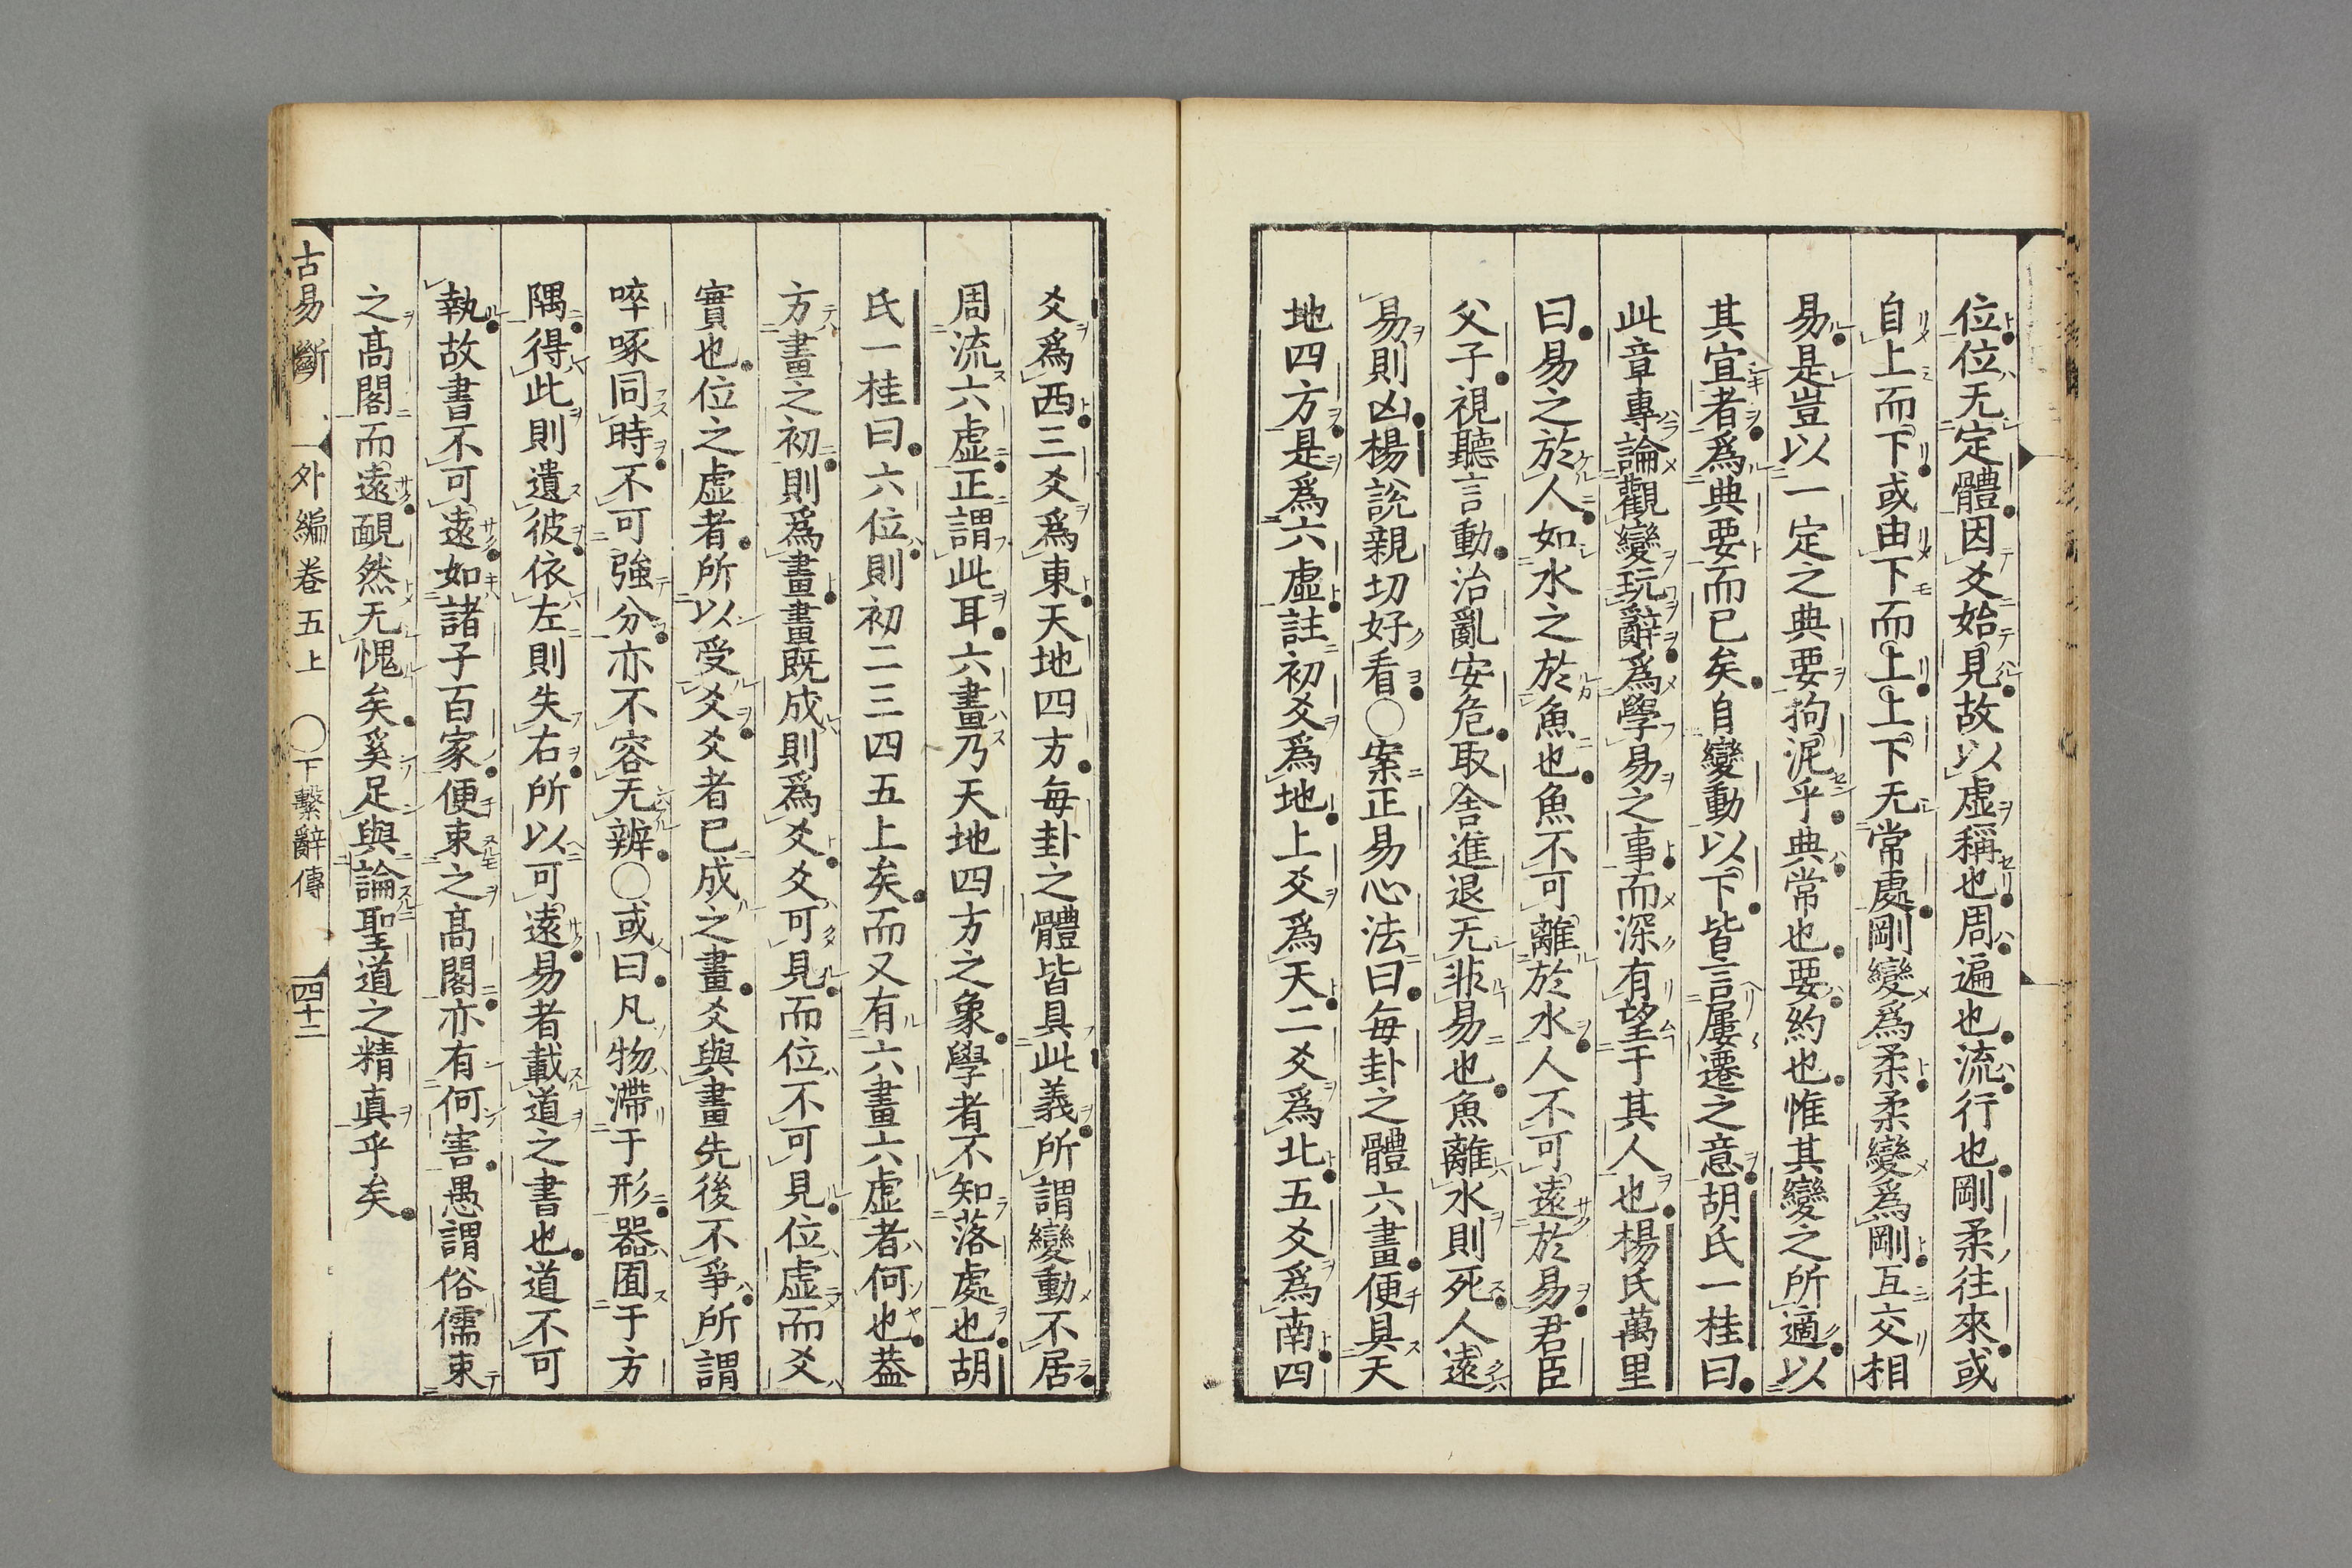 位位无定體因爻始見故以虛稱也周遍也流行也剛柔往來或
自上而下或由下而上上下无常處剛變爲柔柔變爲剛互交相
易是豈以一定之典要拘泥乎典常也要約也惟其變之所適以
其宜者爲典要而已矣自變動以下皆言屢遷之意胡氏一桂曰
此章專論觀變玩辭爲學易之事而深有望于其人也楊氏萬里
曰易之於人如水之於魚也魚不可離於水人不可遠於易君臣
父子視聽言動治亂安危取舍進退无非易也魚離水則死人遠
易則凶楊說親切好看○案正易心法曰每卦之體六畫便具天
地四方是爲六虛註初爻爲地上爻爲天二爻爲北五爻爲南四
爻爲西三爻爲東天地四方每卦之體皆具此義所謂變動不居
周流六虛正謂此耳六畫乃天地四方之象學者不知落處也胡
氏一桂曰六位則初二三四五上矣而又有六畫六虛者何也蓋
方畫之初則爲畫畫既成則爲爻爻可見而位不可見位虛而爻
實也位之虛者所以受爻爻者已成之畫爻與畫先後不爭所謂
啐啄同時不可強分亦不容无辨○或曰凡物滯于形器囿于方
隅得此則遺彼依左則失右所以可遠易者載道之書也道不可
執故書不可遠如諸子百家便束之高閣亦有何害愚謂俗儒束
之高閣而遠靦然无愧矣奚足與論聖道之精眞乎矣
古易斷 外編卷五上 ○下繫辭傳 四十二